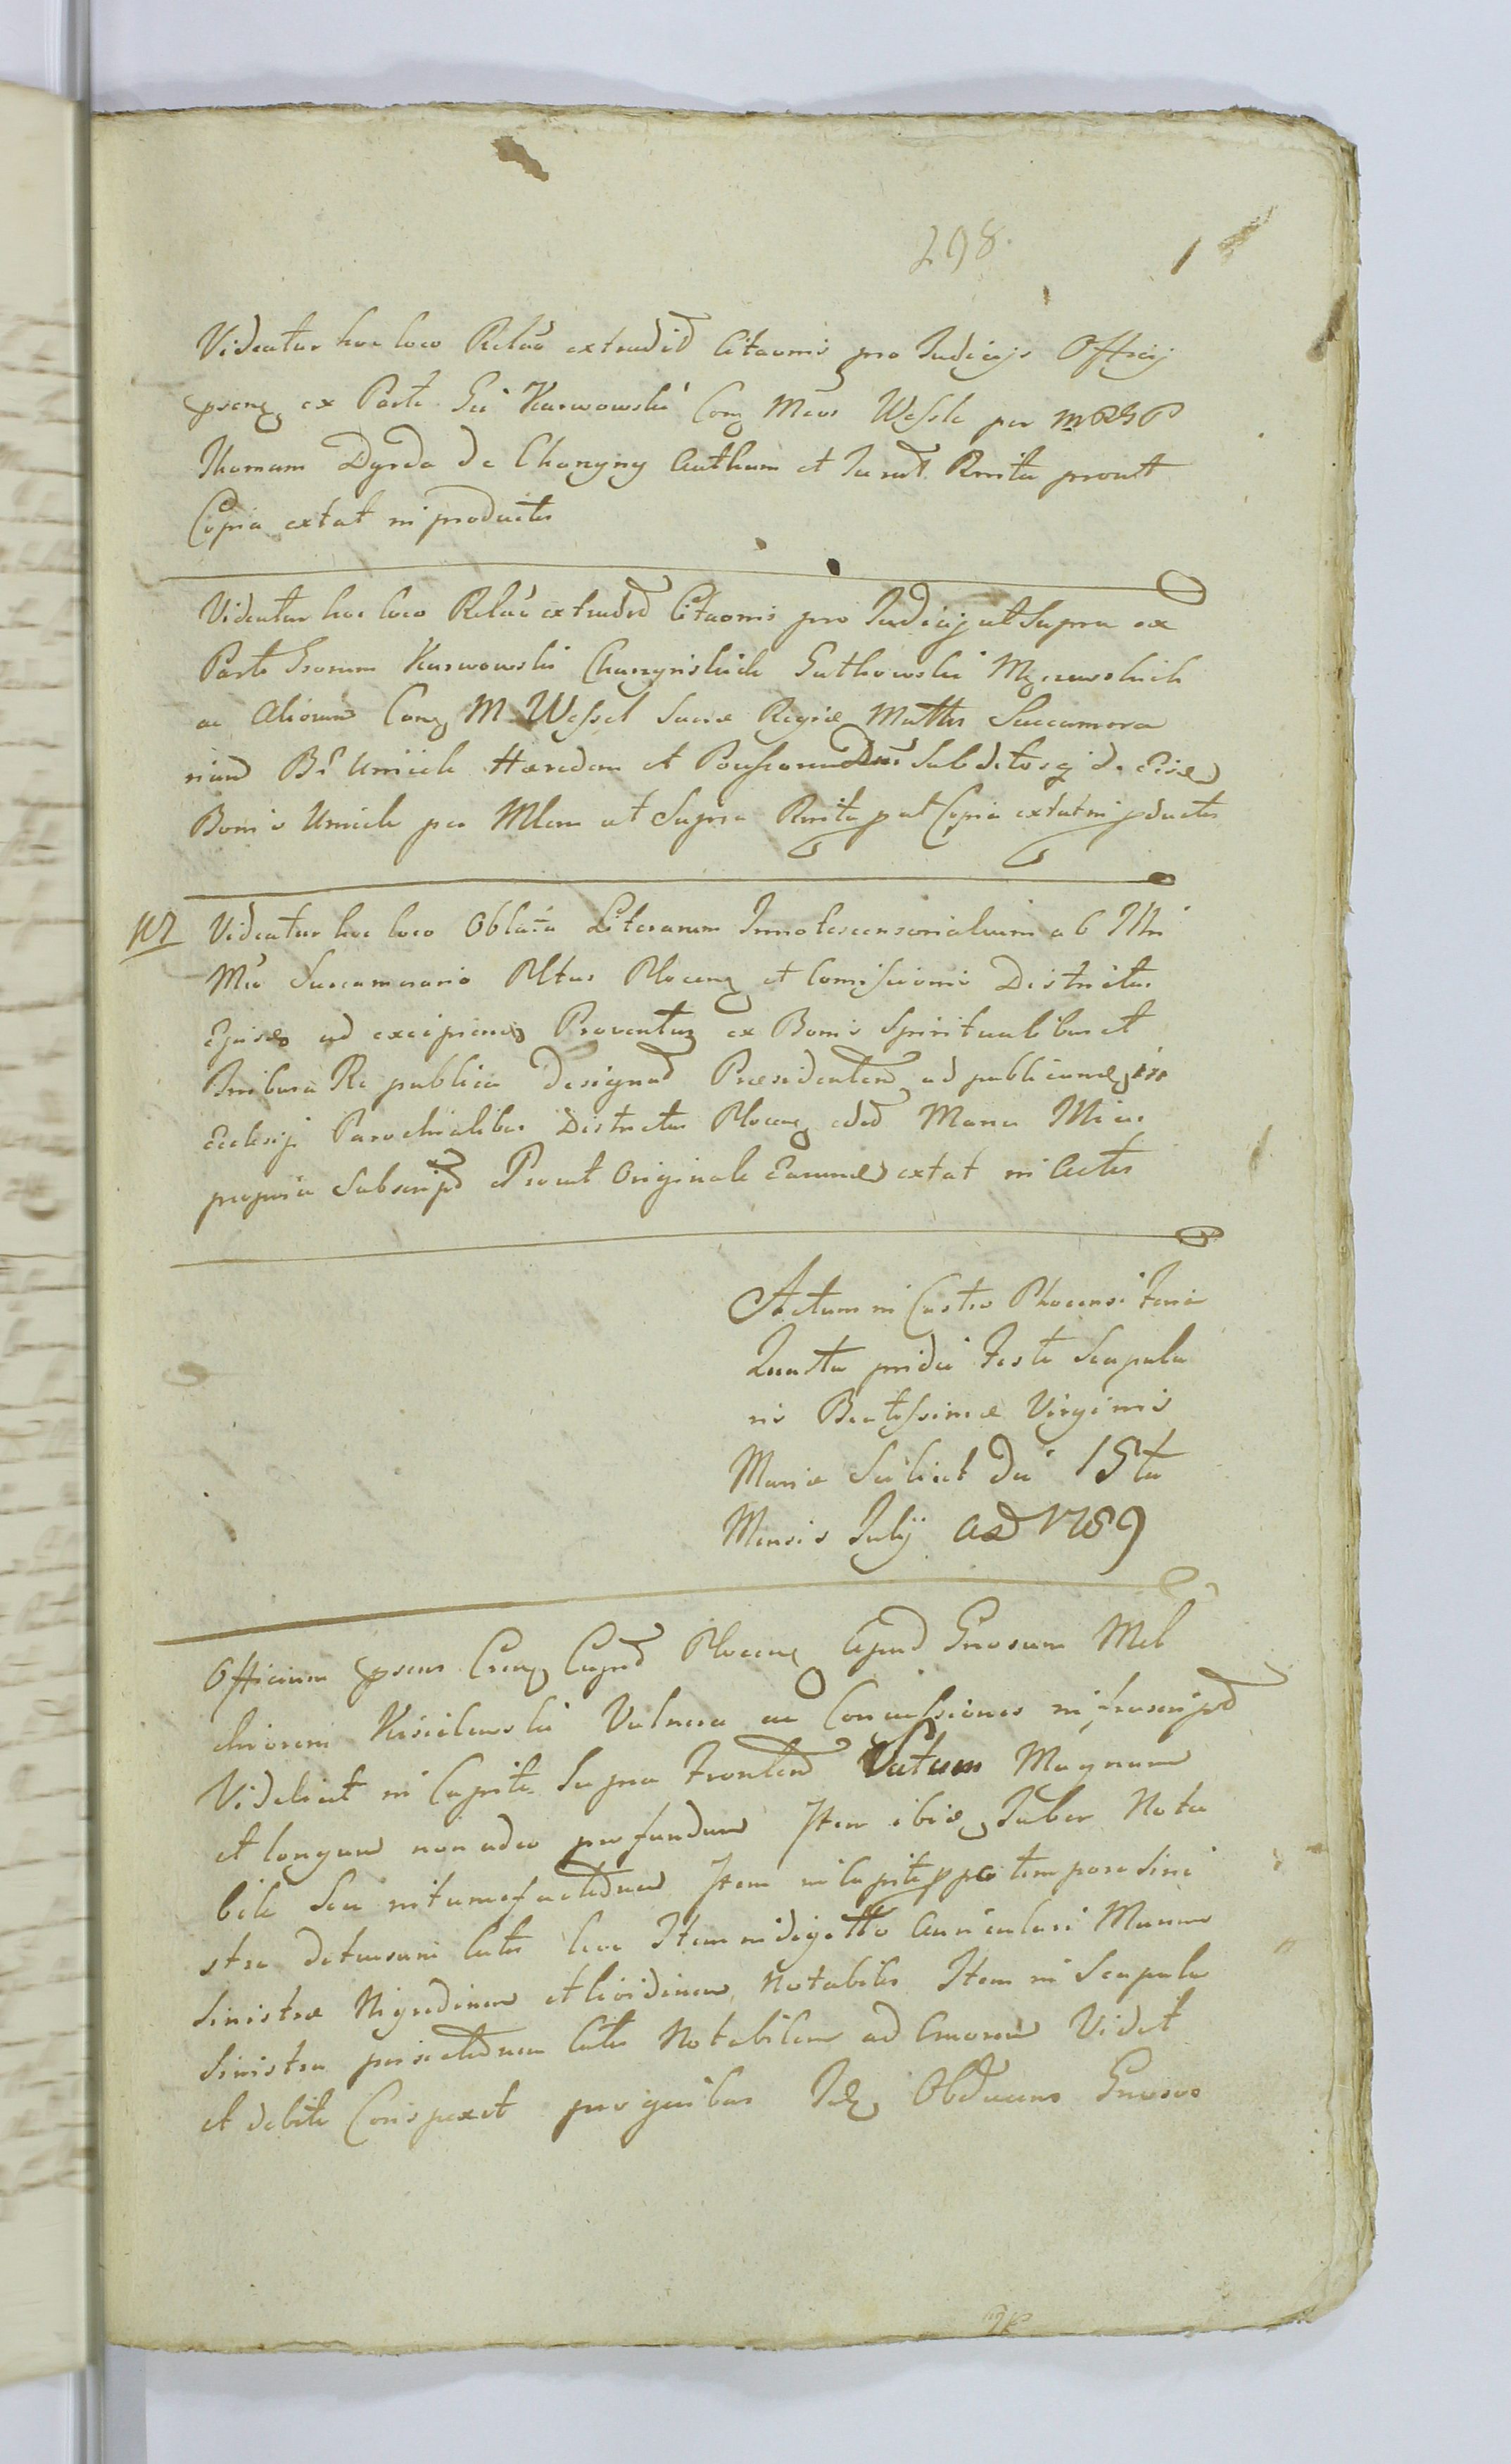 298.
Videatur hoc loco Relãõ extradit Citaonis pro Judicijs Officij
ex Parte Gsi Karwowski Con Meos Wessle per MRGP
Thomam Dyrda de Chonyny Authum et Jurat Rnita prout
Copia extat in productis
Videatur hoc loco Relãõ extradit Citaonis pro Judicij ut Supra ex
Parte Gsorum Karwowski Gutkowski
ac Aliorum Con M. Wessel Sacræ Regiæ Mattis Succamera
rium Br Umich Hæredem et Possorem Subditosq de Eisd
Bonis Umich per Mlem ut Supra Rnita put Copia extat in pductis
Videatur hoc loco Oblata Literarum Innotescensorialium ab Illri
Mco Succamerario Pltus Plocen et Comissionis Districtus
Ejusd ad excipiend Proventus ex Bonis Spiritualibus et
Juribus a Re publica Designat Præsidentem ad publicand in
Ecclesijs Parochialibus Districtus Plocen edit Manu Mcius
propria Subscript Prout Originale Earund extat in Actis
Actum in Castro Plocensi Feria
Quarta pridie Festi Scapula
ris Beatissimæ Virginis
Mariæ Scilicet Die 15ta
Mensis Julij AD 1789
Officium psens Cren Caprd Plocen Apud Gnosum Mel
chiorem Kisielewski Vulnera ac Concussiones infrascript
Videlicet in Capite Supra Frontem Satum Magnum
et longum non adeo profundum Item ibid Tuber Nota
bile Seu intumefactionem Item in Capite ppe tempora Sini
stra detursam Cutis leve Item in digitto Auriculari Manus
Sinistræ Nigredinem et lividinem Notabiles Item in Scapula
Sinistra Cutis Notabilem ad Cruorem Vidit
et debite Conspexit pro quibus Id Obducens Gnoso